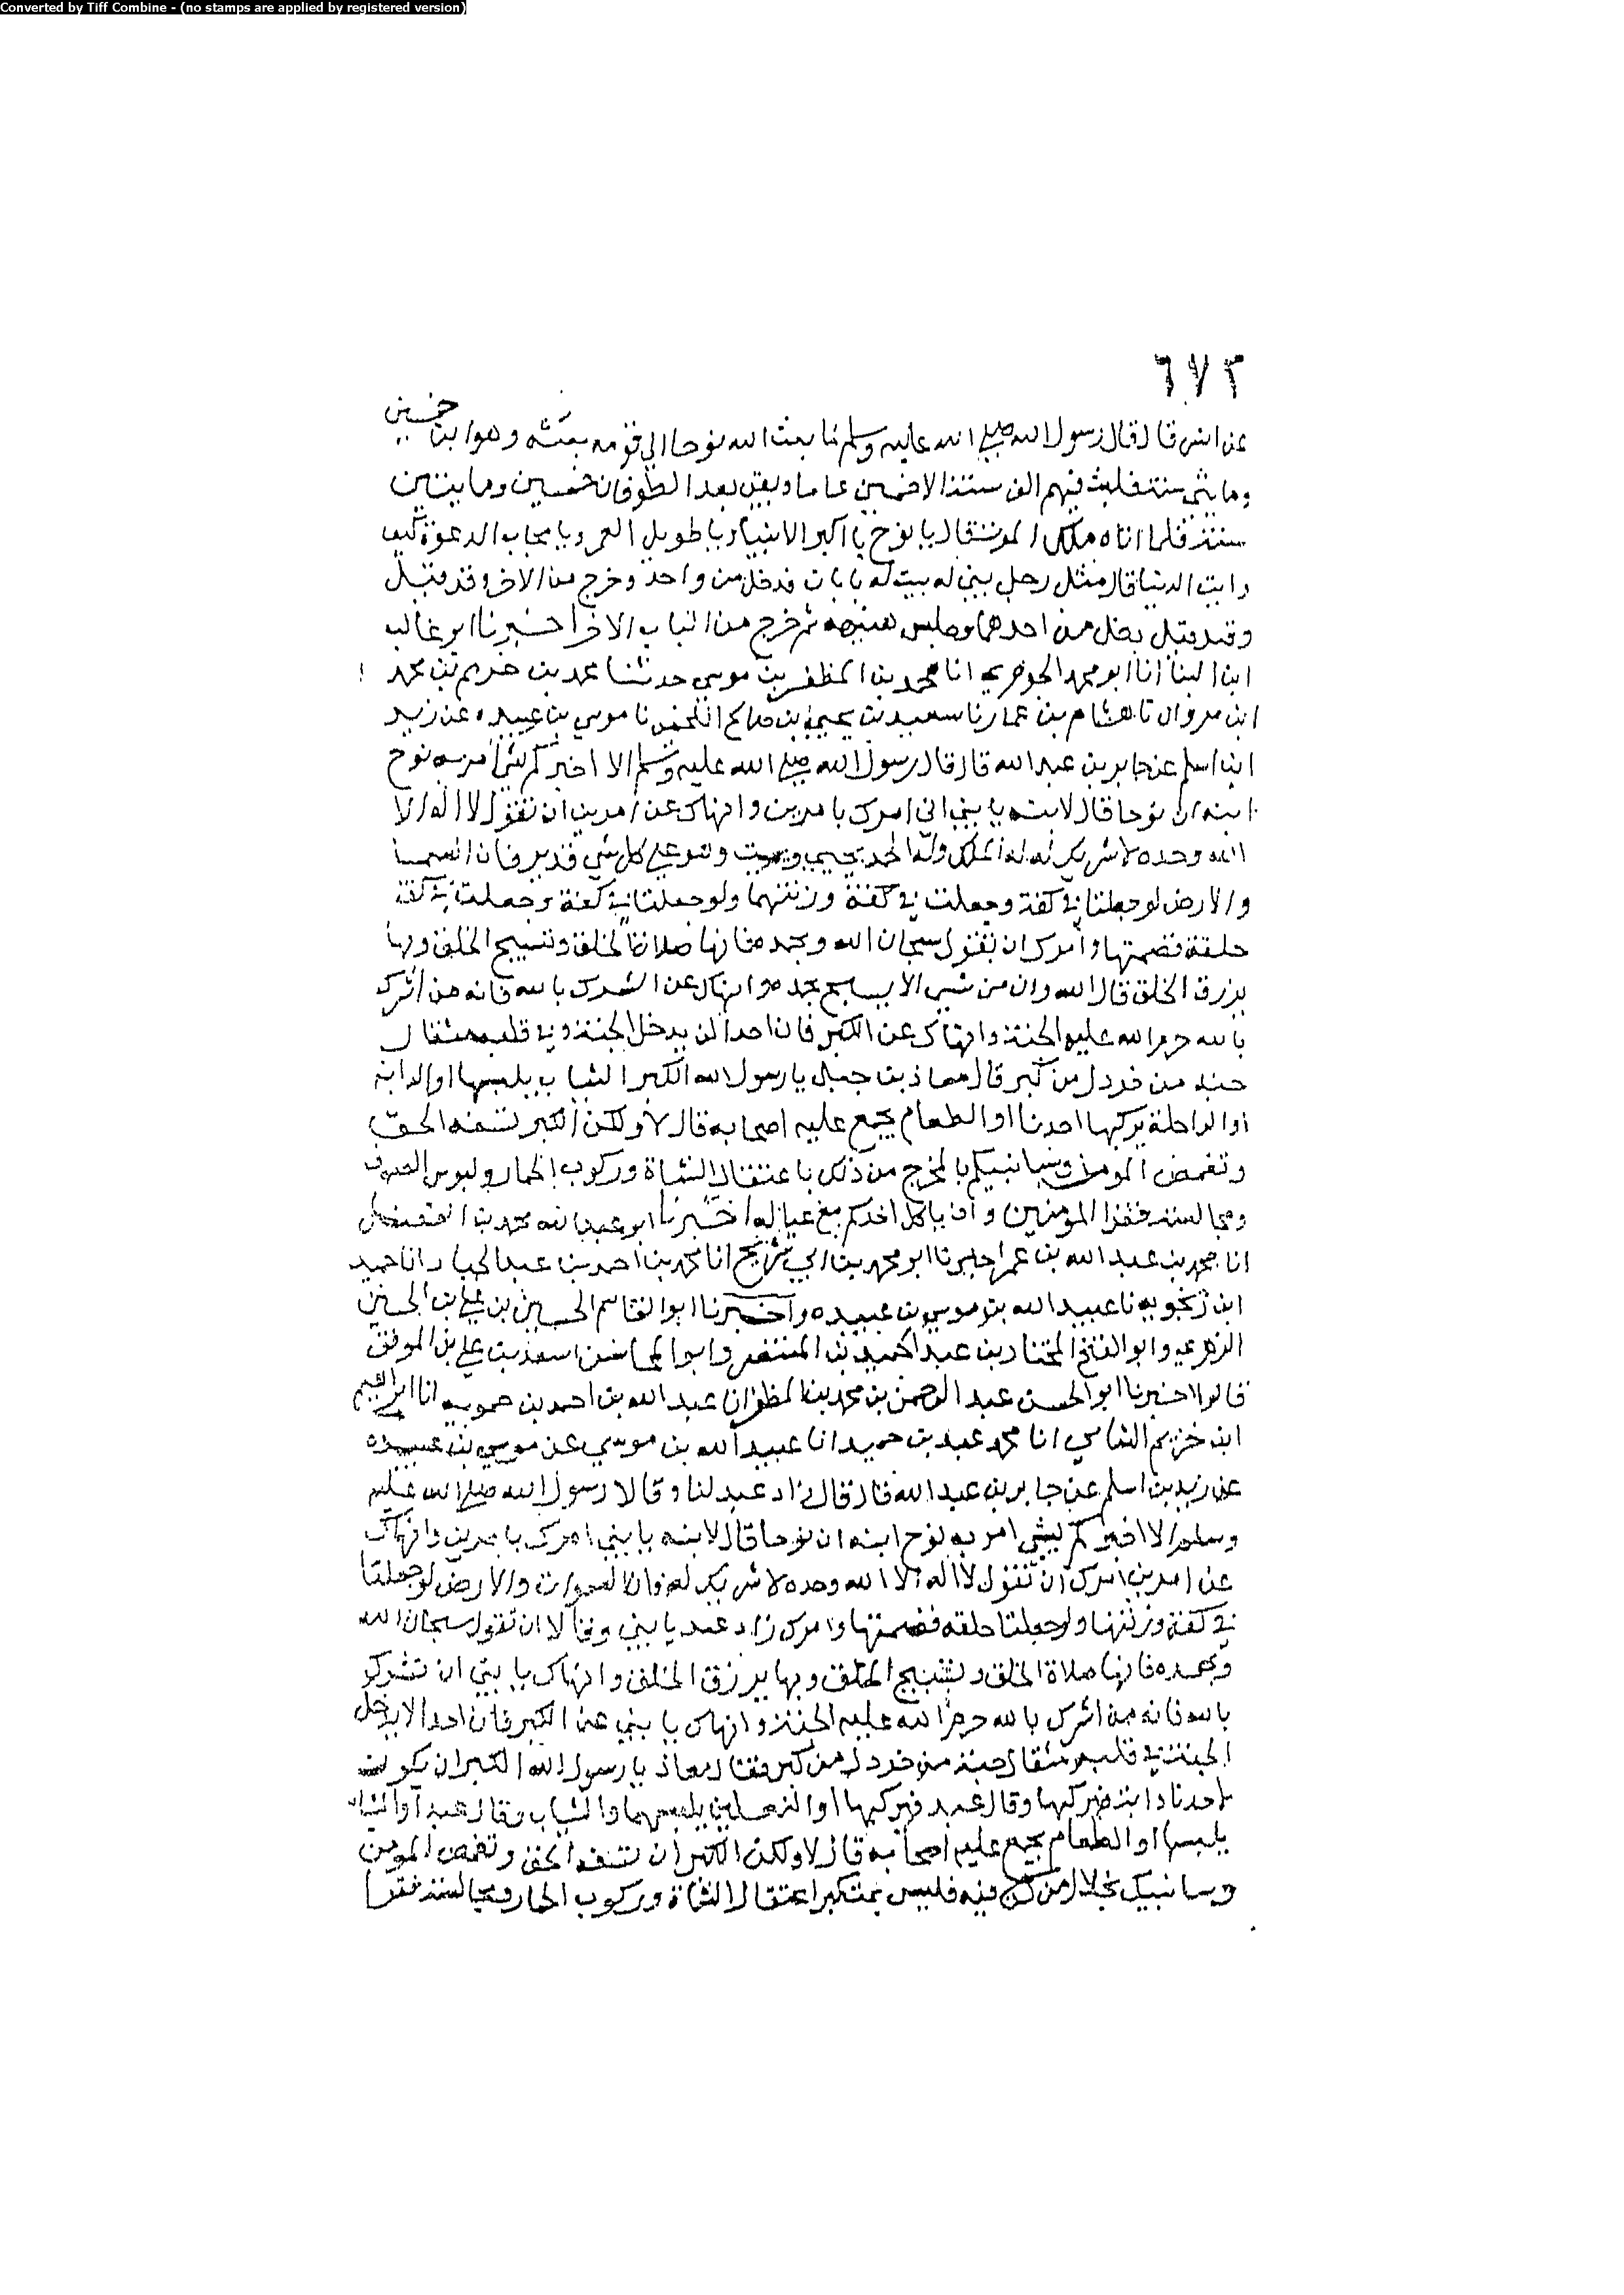 Converted by Tiff Combine - (no stamps are applied by registered version)
٦٧٢
عن انس قال قال رسول الله صلى الله عليه وسلم لما بعث الله نوحا الى قومه بعثه وهو ابن خمسين
ومايتي سنة فلبث فيهم الف سنة الا خمسين عاما وبقي بعد الطوفان خمسين ومايتين
سنة فلما اتاه ملك الموت قال يا نوح يا اكبر الانبياء ويا طويل العمر ويا مجاب الدعوة كيف
رايت الدنيا قال مثل رجل بني له بيت له بابان فدخل من واحد وخرج من الاخر وقد قيل
وقيل دخل من احدهما وجلس هنيهة ثم خرج من الباب الاخر اخبرنا ابو غالب
ابن البنا انا ابو محمد الجوهري انا محمد بن المظفر بن موسي حدثنا محمد بن خريم بن محمد
ابن مروان نا هشام بن عمار نا سعيد بن يحيي بن صالح اللخمي نا موسي بن عبيده عن زيد
ابن اسلم عن جابر بن عبد الله قال قال رسول الله صلى الله عليه وسلم الا اخبركم بشي امر به نوح
ابنه ان نوحا قال لابنه يا بني اني امرك بامرين وانهاك عن امرين ان تقول لا اله الا
الله وحده لا شريك له له الملك وله الحمد يحيي ويميت وهو علي كل شي قدير فان السما
والارض لو جعلتا في كفة وجعلت في كفة وزنتهما ولو جعلتا في كفة وجعلت في كفة
حلقة فضمتها وامرك ان تقول سبحان الله وبحمده فانها صلاة الخلق وتسبيح الخلق وبها
يرزق الخلق قال الله وان من شيي الا يسبح بحمده وانهاك عن الشرك بالله فانه من اشرك
بالله حرم الله عليه الجنة وانهاك عن الكبر فان احدا لن يدخل الجنة وفي قلبه مثقال
حبة من خردل من كبر قال معاذ بن جبل يا رسول الله الكبر الثياب يلبسها او الدابة
او الراحلة يركبها احدنا او الطعام يجمع عليه اصحابه قال لا ولكن الكبر تسفه الحق
وتغمص المومن وسانبيكم بالمخرج من ذلك باعتقال الشاة وركوب الحمار ولبوس الصوف
ومجالسة فقرا المومنين وان ياكل احدكم مع عياله اخبرنا ابو عبد الله محمد بن الفضل
انا محمد بن عبد الله بن عمر اخبرنا ابو محمد بن ابي شريح انا محمد بن احمد بن عبد الجبار انا حميد
ابن زنجويه نا عبيد الله بن موسي بن عبيده واخبرنا ابو القاسم الحسين بن علي بن الحسين
الزهري وابو الفتح المختار بن عبد الحميد بن المنتصر وابو المحاسن اسعد بن علي بن الموفق
قالوا اخبرنا ابو الحسن عبد الرحمن بن محمد بن المظفر انا عبد الله بن احمد بن حمويه انا ابراهيم
ابن خزيم الشاسي انا محمد عبد بن حميد انا عبيد الله بن موسي عن موسي بن عبيده
عن زيد بن اسلم عن جابر بن عبد الله قال قال زاد عبد لنا وقالا رسول الله صلى الله عليه
وسلم الا اخبركم بشي امر به نوح ابنه ان نوحا قال لابنه يا بني امرك بامرين وانهاك
عن امرين امرك ان تقول لا اله الا الله وحده لا شريك له فان السموات والارض لو جعلتا
في كفة وزنتها ولو جعلتا حلقه فضمتها وامرك زاد عبد يا بني وقالا ان تقول سبحان الله
وبحمده فانها صلاة الخلق وتسبيح الخلق وبها يرزق الخلق وانهاك يا بني ان تشرك
بالله فانه من اشرك بالله حرم الله عليه الجنة وانهاك يا بني عن الكبر فان احدا لا يدخل
الجنة في قلبه مثقال حبة من خردل من كبر فقال معاذ يا رسول الله الكبر ان يكون
لاحدنا دابة يركبها وقال عبد فيركبها او النعلين يلبسهما والثياب وقال عبد او الثياب
يلبسها او الطعام يجمع عليه اصحابه قال لا ولكن الكبر ان تسفه الحق وتغمص المومن
وسانبيك بخلال من كن فيه فليس بمتكبر اعتقال الشاة وركوب الحمار ومجالسة فقرا